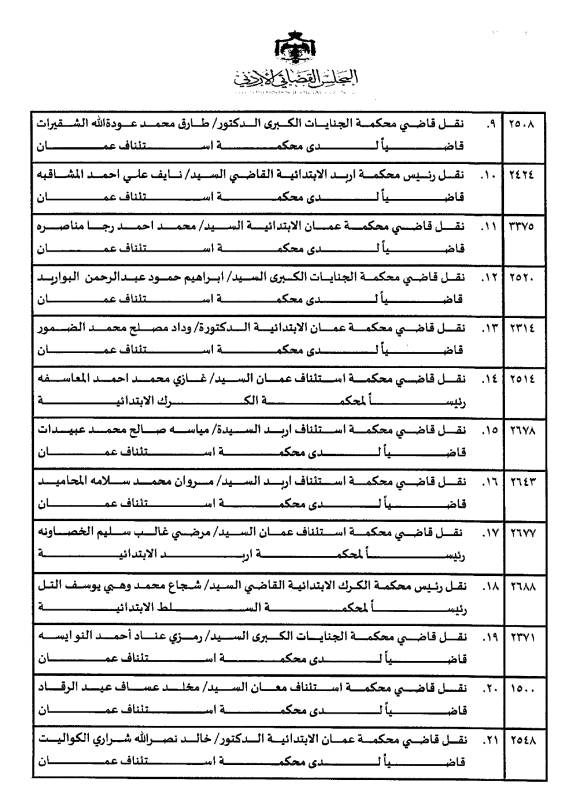 المجلس القضائي الاردني
٢٥٠٨ ٩. نقل قاضي محكمة الجنايات الكبرى الدكتور/ طارق محمد عودةالله الشقيرات
قاضياً لدى محكمة استئناف عمان
٢٤٢٤ ١٠. نقل رئيس محكمة اربد الابتدائية القاضي السيد/ نايف علي احمد المشاقبه
قاضياً لدى محكمة استئناف عمان
٣٣٧٥ ١١. نقل قاضي محكمة عمان الابتدائية السيد/ محمد احمد رجا مناصره
قاضياً لدى محكمة استئناف عمان
٢٥٢٠ ١٢. نقل قاضي محكمة الجنايات الكبرى السيد/ ابراهيم حمود عبدالرحمن البواريد
قاضياً لدى محكمة استئناف عمان
٢٣١٤ ١٣. نقل قاضي محكمة عمان الابتدائية الدكتورة/ وداد مصلح محمد الضمور
قاضياً لدى محكمة استئناف عمان
٢٥١٤ ١٤. نقل قاضي محكمة استئناف عمان السيد/ غازي محمد احمد المعاسفه
رئيساً لمحكمة الكرك الابتدائية
٢٦٧٨ ١٥. نقل قاضي محكمة استئناف اربد السيدة/ مياسه صالح محمد عبيدات
قاضياً لدى محكمة استئناف عمان
٢٦٤٣ ١٦. نقل قاضي محكمة استئناف اربد السيد/ مروان محمد سلامه المحاميد
قاضياً لدى محكمة استئناف عمان
٢٦٧٧ ١٧. نقل قاضي محكمة استئناف عمان السيد/ مرضي غالب سليم الخصاونه
رئيساً لمحكمة اربد الابتدائية
٢٦٨٨ ١٨. نقل رئيس محكمة الكرك الابتدائية القاضي السيد/ شجاع محمد وهبي يوسف التل
رئيساً لمحكمة السلط الابتدائية
٢٣٧١ ١٩. نقل قاضي محكمة الجنايات الكبرى السيد/ رمزي عناد أحمد النوايسه
قاضياً لدى محكمة استئناف عمان
١٥٠٠ ٢٠. نقل قاضي محكمة استئناف معان السيد/ مخلد عساف عيد الرقاد
قاضياً لدى محكمة استئناف عمان
٢٥٤٨ ٢١. نقل قاضي محكمة عمان الابتدائية الدكتور/ خالد نصرالله شراري الكواليت
قاضياً لدى محكمة استئناف عمان